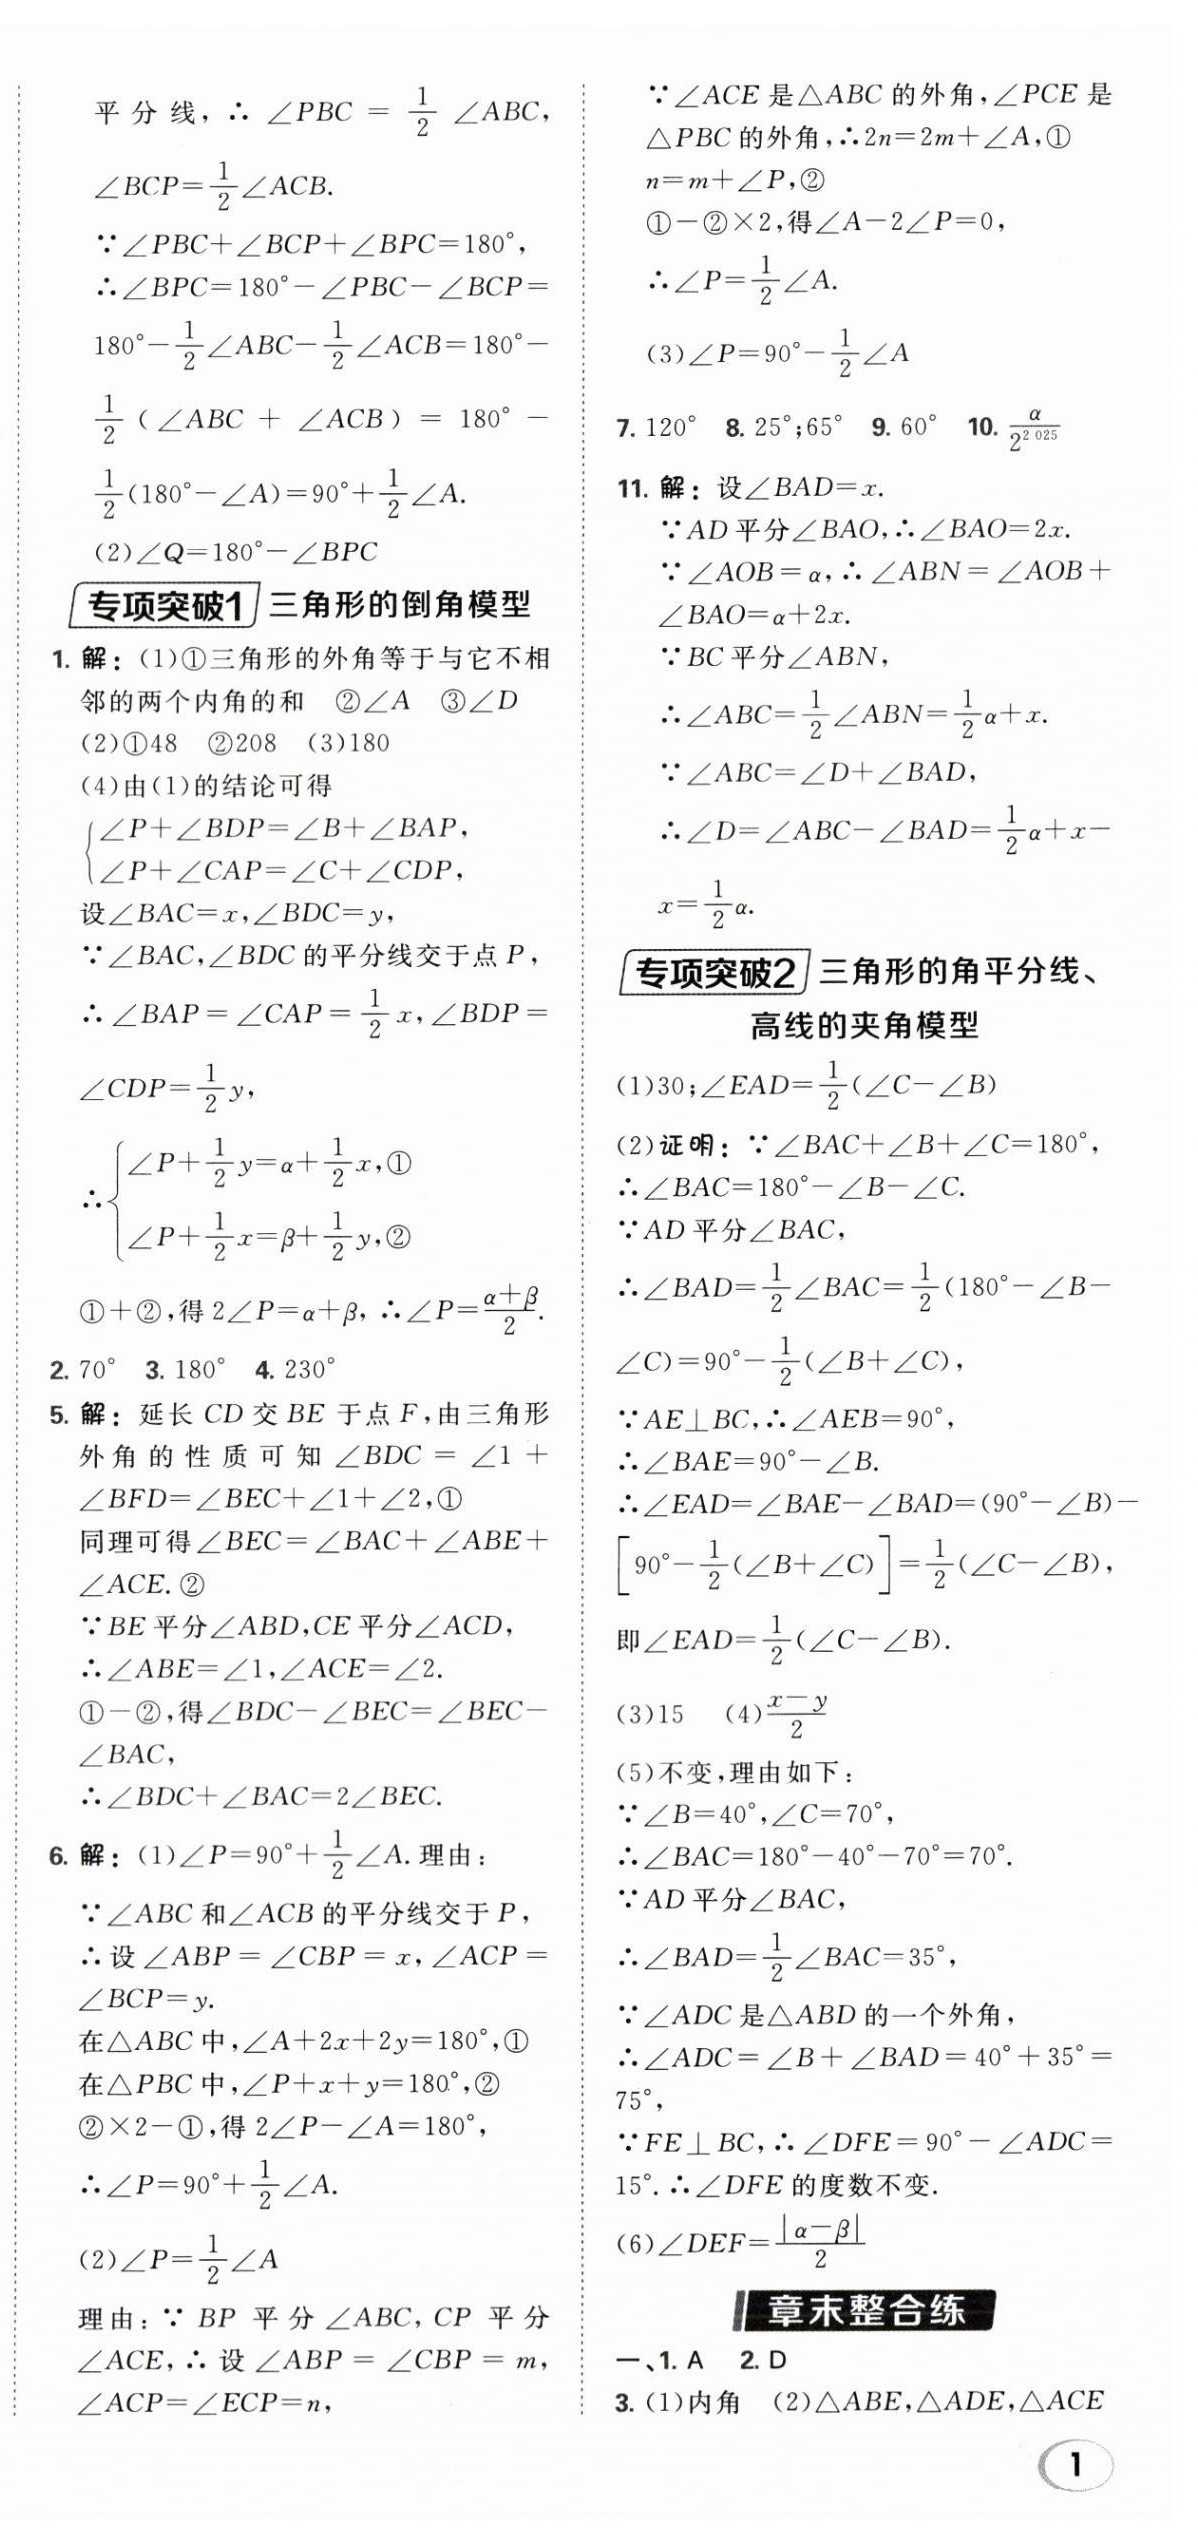 平分线，∴∠PBC = 1/2 ∠ABC，
∠BCP=1/2∠ACB.
∵∠PBC+∠BCP+∠BPC=180°，
∴∠BPC=180°−∠PBC−∠BCP=
180°−1/2∠ABC−1/2∠ACB=180°−
1/2（∠ABC + ∠ACB）= 180° −
1/2(180°−∠A)=90°+1/2∠A.
(2)∠Q=180°−∠BPC
专项突破1 三角形的倒角模型
1. 解：(1)①三角形的外角等于与它不相
邻的两个内角的和 ②∠A ③∠D
(2)①48 ②208 (3)180
(4)由(1)的结论可得
{∠P+∠BDP=∠B+∠BAP，
∠P+∠CAP=∠C+∠CDP，
设∠BAC=x，∠BDC=y，
∵∠BAC，∠BDC的平分线交于点P，
∴∠BAP=∠CAP=1/2x，∠BDP=
∠CDP=1/2y，
∴{∠P+1/2y=α+1/2x，①
∠P+1/2x=β+1/2y，②
①+②，得2∠P=α+β，∴∠P=(α+β)/2.
2. 70° 3. 180° 4. 230°
5. 解：延长CD交BE于点F，由三角形
外角的性质可知∠BDC = ∠1 +
∠BFD=∠BEC+∠1+∠2，①
同理可得∠BEC=∠BAC+∠ABE+
∠ACE.②
∵BE平分∠ABD，CE平分∠ACD，
∴∠ABE=∠1，∠ACE=∠2.
①−②，得∠BDC−∠BEC=∠BEC−
∠BAC，
∴∠BDC+∠BAC=2∠BEC.
6. 解：(1)∠P=90°+1/2∠A.理由：
∵∠ABC和∠ACB的平分线交于P，
∴设∠ABP=∠CBP=x，∠ACP=
∠BCP=y.
在△ABC中，∠A+2x+2y=180°，①
在△PBC中，∠P+x+y=180°，②
②×2−①，得2∠P−∠A=180°，
∴∠P=90°+1/2∠A.
(2)∠P=1/2∠A
理由：∵BP平分∠ABC，CP平分
∠ACE，∴设∠ABP=∠CBP=m，
∠ACP=∠ECP=n，
∵∠ACE是△ABC的外角，∠PCE是
△PBC的外角，∴2n=2m+∠A，①
n=m+∠P，②
①−②×2，得∠A−2∠P=0，
∴∠P=1/2∠A.
(3)∠P=90°−1/2∠A
7. 120° 8. 25°；65° 9. 60° 10. α/2^(2 025)
11. 解：设∠BAD=x.
∵AD平分∠BAO，∴∠BAO=2x.
∵∠AOB=α，∴∠ABN=∠AOB+
∠BAO=α+2x.
∵BC平分∠ABN，
∴∠ABC=1/2∠ABN=1/2α+x.
∵∠ABC=∠D+∠BAD，
∴∠D=∠ABC−∠BAD=1/2α+x−
x=1/2α.
专项突破2 三角形的角平分线、
高线的夹角模型
(1)30；∠EAD=1/2(∠C−∠B)
(2)证明：∵∠BAC+∠B+∠C=180°，
∴∠BAC=180°−∠B−∠C.
∵AD平分∠BAC，
∴∠BAD=1/2∠BAC=1/2(180°−∠B−
∠C)=90°−1/2(∠B+∠C)，
∵AE⊥BC，∴∠AEB=90°，
∴∠BAE=90°−∠B.
∴∠EAD=∠BAE−∠BAD=(90°−∠B)−
[90°−1/2(∠B+∠C)]=1/2(∠C−∠B)，
即∠EAD=1/2(∠C−∠B).
(3)15 (4)(x−y)/2
(5)不变，理由如下：
∵∠B=40°，∠C=70°，
∴∠BAC=180°−40°−70°=70°.
∵AD平分∠BAC，
∴∠BAD=1/2∠BAC=35°，
∵∠ADC是△ABD的一个外角，
∴∠ADC=∠B+∠BAD=40°+35°=
75°，
∵FE⊥BC，∴∠DFE=90°−∠ADC=
15°.∴∠DFE的度数不变.
(6)∠DEF=|α−β|/2
章末整合练
一、1. A 2. D
3. (1)内角 (2)△ABE，△ADE，△ACE
1